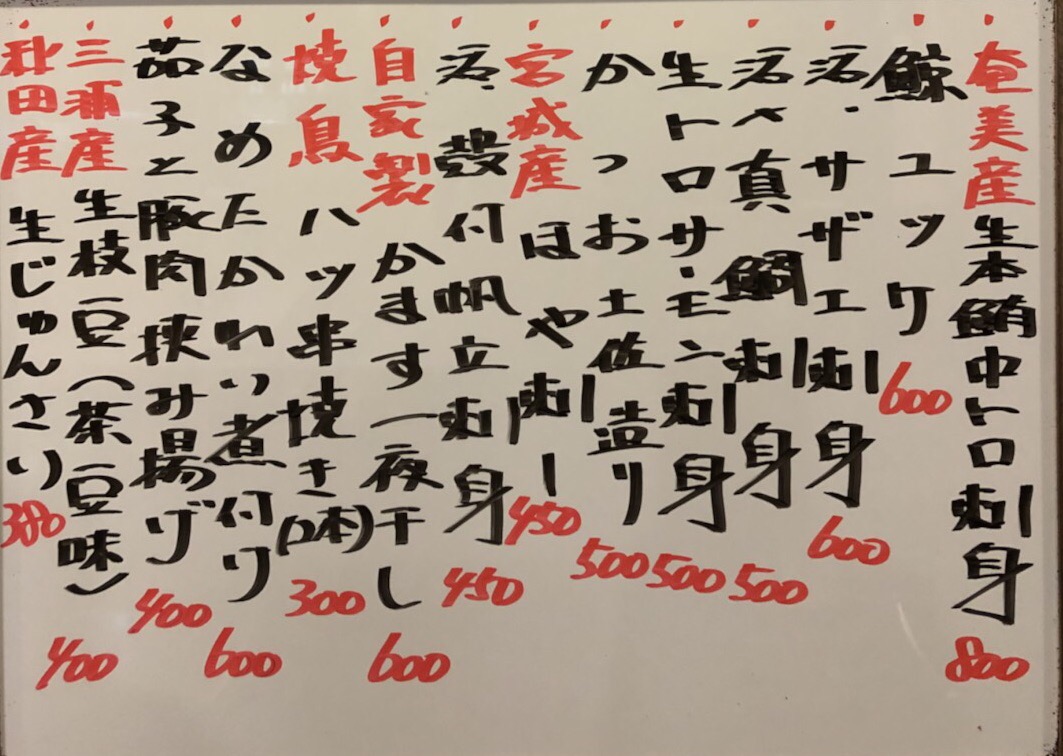 奄美産生本鮪中トロ刺身 800
鯨ユッケ 600
活・サザエ刺身 600
活〆真鯛刺身 500
生トロサーモン刺身 500
かつお土佐造り 500
宮城産 ほや刺し 450
活・殻付帆立刺身 450
自家製 かます一夜干し 600
焼鳥 ハツ串焼き(2本) 300
なめたかれい煮付け 600
茄子と豚肉挟み揚げ 400
三浦産生枝豆(茶豆味) 400
秋田産 生じゅんさい 380